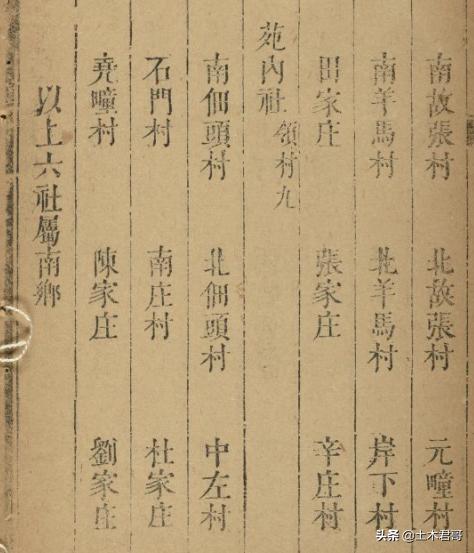 南故張村 北故張村 元疃村
南羊馬村 北羊馬村 岸下村
田家庄 張家庄 辛庄村
苑內社 領村九
南佃頭村 北佃頭村 中左村
石門村 南庄村 杜家庄
堯疃村 陳家庄 劉家庄
以上六社屬南鄉
头条 @土木君哥